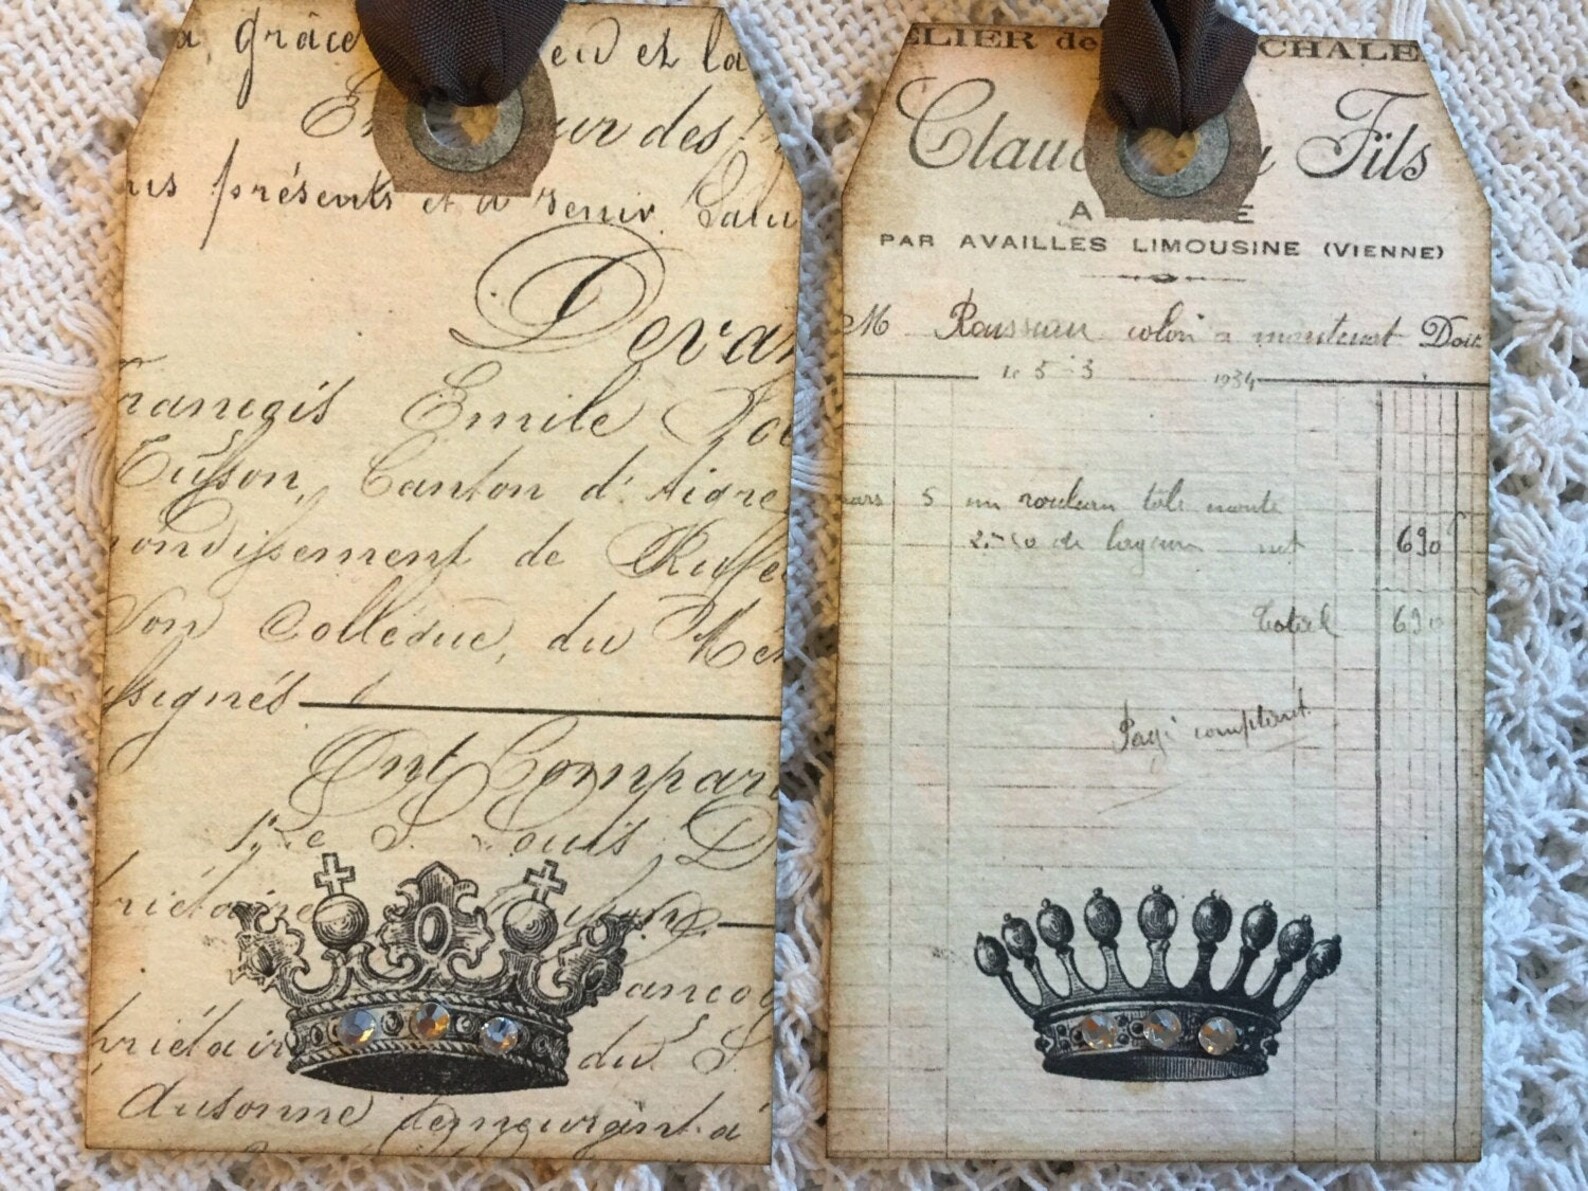 grâce eu et la
ur des
présents et à venir Salu
Devan
rançois Emile
Tusson, Canton d'Aigre
ondissement de Ruffe
Son Collègue, du
ssignés
Ont Compar
Louis D
riétaire
ancoi
priétair du S.
Ausonne demeurant à
ELIER de CHALE
Clau Fils
A E
PAR AVAILLES LIMOUSINE (VIENNE)
M Rousseau colon a Doit
le 5-3 1934
mars 5 un rouleau tôle
de 690
Total 690
Payé comptant